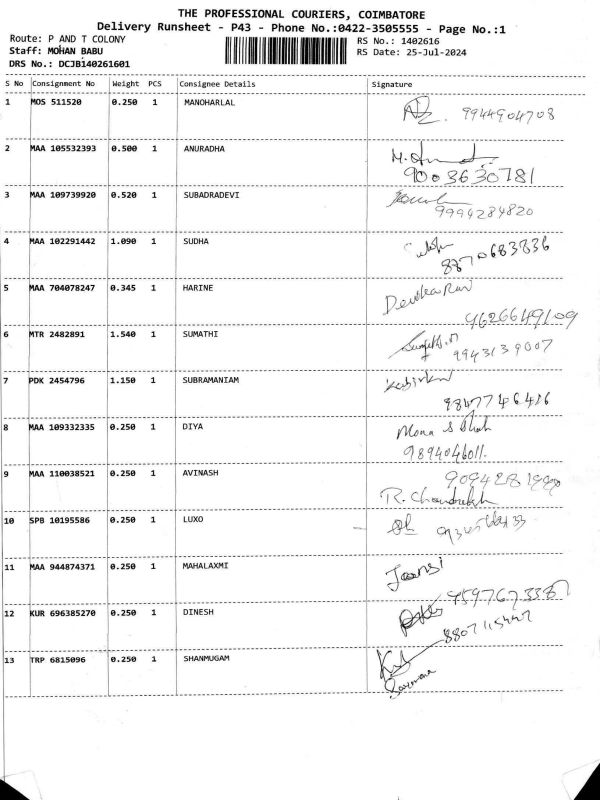 THE PROFESSIONAL COURIERS, COIMBATORE
Delivery Runsheet - P43 - Phone No.:0422-3505555 - Page No.:1
Route: P AND T COLONY
RS No.: 1402616
Staff: MOHAN BABU
RS Date: 25-Jul-2024
DRS No.: DCJB140261601
S No Consignment No Weight PCS Consignee Details Signature
1 MOS 511520 0.250 1 MANOHARLAL 9944904708
2 MAA 105532393 0.500 1 ANURADHA
9003630781
3 MAA 109739920 0.520 1 SUBADRADEVI
9994284820
4 MAA 102291442 1.090 1 SUDHA
8870683836
5 MAA 704078247 0.345 1 HARINE
9626649109
6 MTR 2482891 1.540 1 SUMATHI
9943139007
7 PDK 2454796 1.150 1 SUBRAMANIAM
8 MAA 109332335 0.250 1 DIYA Mona S Shah
9894046011.
9 MAA 110038521 0.250 1 AVINASH
R. Chandrulekh
10 SPB 10195586 0.250 1 LUXO
11 MAA 944874371 0.250 1 MAHALAXMI Jansi
12 KUR 696385270 0.250 1 DINESH
13 TRP 6815096 0.250 1 SHANMUGAM